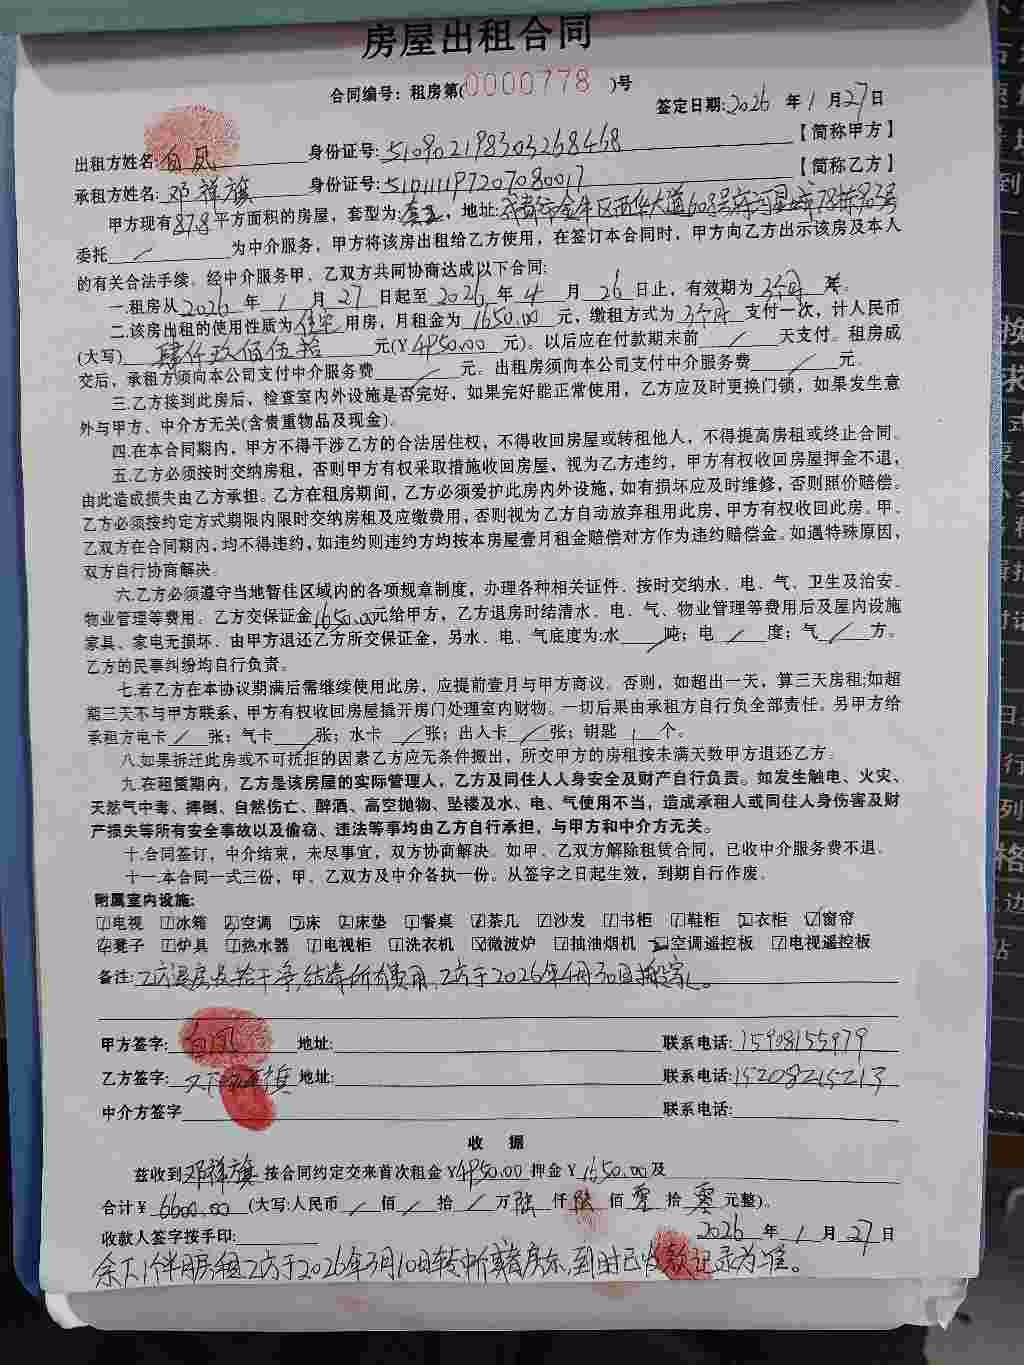 房屋出租合同
合同编号：租房第(0000778)号
签定日期:2026 年 1 月 27 日
出租方姓名: 白凤 身份证号: 510902198303268468 【简称甲方】
承租方姓名: 邓祥旗 身份证号: 510111197207080017 【简称乙方】
甲方现有 87.8 平方面积的房屋，套型为 套三，地址: 成都市金牛区西华大道608号
委托 / 为中介服务，甲方将该房出租给乙方使用，在签订本合同时，甲方向乙方出示该房及本人
的有关合法手续。经中介服务甲、乙双方共同协商达成以下合同:
一.租房从 2026 年 1 月 27 日起至 2026 年 4 月 26 日止，有效期为 3个月
二.该房出租的使用性质为 住宅 用房，月租金为 1650.00 元，缴租方式为 3个月 支付一次，计人民币
(大写) 肆仟玖佰伍拾 元(¥ 4950.00 元)。以后应在付款期末前 / 天支付。租房成
交后，承租方须向本公司支付中介服务费 / 元。出租房须向本公司支付中介服务费 / 元。
三.乙方接到此房后，检查室内外设施是否完好，如果完好能正常使用，乙方应及时更换门锁，如果发生意
外与甲方、中介方无关(含贵重物品及现金)。
四.在本合同期内，甲方不得干涉乙方的合法居住权，不得收回房屋或转租他人，不得提高房租或终止合同。
五.乙方必须按时交纳房租，否则甲方有权采取措施收回房屋，视为乙方违约，甲方有权收回房屋押金不退，
由此造成损失由乙方承担。乙方在租房期间，乙方必须爱护此房内外设施，如有损坏应及时维修，否则照价赔偿。
乙方必须按约定方式期限内限时交纳房租及应缴费用，否则视为乙方自动放弃租用此房，甲方有权收回此房。甲、
乙双方在合同期内，均不得违约，如违约则违约方均按本房屋壹月租金赔偿对方作为违约赔偿金。如遇特殊原因，
双方自行协商解决。
六.乙方必须遵守当地暂住区域内的各项规章制度，办理各种相关证件、按时交纳水、电、气、卫生及治安、
物业管理等费用。乙方交保证金 1650.00元给甲方，乙方退房时结清水、电、气、物业管理等费用后及屋内设施
家具、家电无损坏、由甲方退还乙方所交保证金，另水、电、气底度为:水 / 吨；电 / 度；气 / 方。
乙方的民事纠纷均自行负责。
七.若乙方在本协议期满后需继续使用此房，应提前壹月与甲方商议。否则，如超出一天，算三天房租;如超
能三天不与甲方联系，甲方有权收回房屋撬开房门处理室内财物。一切后果由承租方自行负全部责任。另甲方给
承租方电卡 / 张；气卡 / 张；水卡 / 张；出入卡 / 张；钥匙 1 个。
八.如果拆迁此房或不可抗拒的因素乙方应无条件搬出，所交甲方的房租按未满天数甲方退还乙方。
九.在租赁期内，乙方是该房屋的实际管理人，乙方及同住人人身安全及财产自行负责。如发生触电、火灾、
天然气中毒、摔倒、自然伤亡、醉酒、高空抛物、坠楼及水、电、气使用不当，造成承租人或同住人身伤害及财
产损失等所有安全事故以及偷窃、违法等事均由乙方自行承担，与甲方和中介方无关。
十.合同签订，中介结束，未尽事宜，双方协商解决。如甲、乙双方解除租赁合同，已收中介服务费不退。
十一.本合同一式三份，甲、乙双方及中介各执一份。从签字之日起生效，到期自行作废。
附属室内设施:
电视 冰箱 空调 床 床垫 餐桌 茶几 沙发 书柜 鞋柜 衣柜 窗帘
凳子 炉具 热水器 电视柜 洗衣机 微波炉 抽油烟机 空调遥控板 电视遥控板
备注: 乙方退房后给干净,结清所有费用,乙方于2026年4月30日搬家。
甲方签字: 白凤 地址: 联系电话: 15908155979
乙方签字: 邓祥旗 地址: 联系电话: 15208215213
中介方签字 联系电话:
收 据
兹收到 邓祥旗 按合同约定交来首次租金¥4950.00 押金¥ 1650.00 及
合计¥ 6600.00 (大写:人民币 / 佰 / 拾 / 万 陆 仟 陆 佰 零 拾 零 元整)。
收款人签字按手印: 2026 年 1 月 27 日
余下1件月房租乙方于2026年3月10日转中介或者房东,到时已收款记录为准。